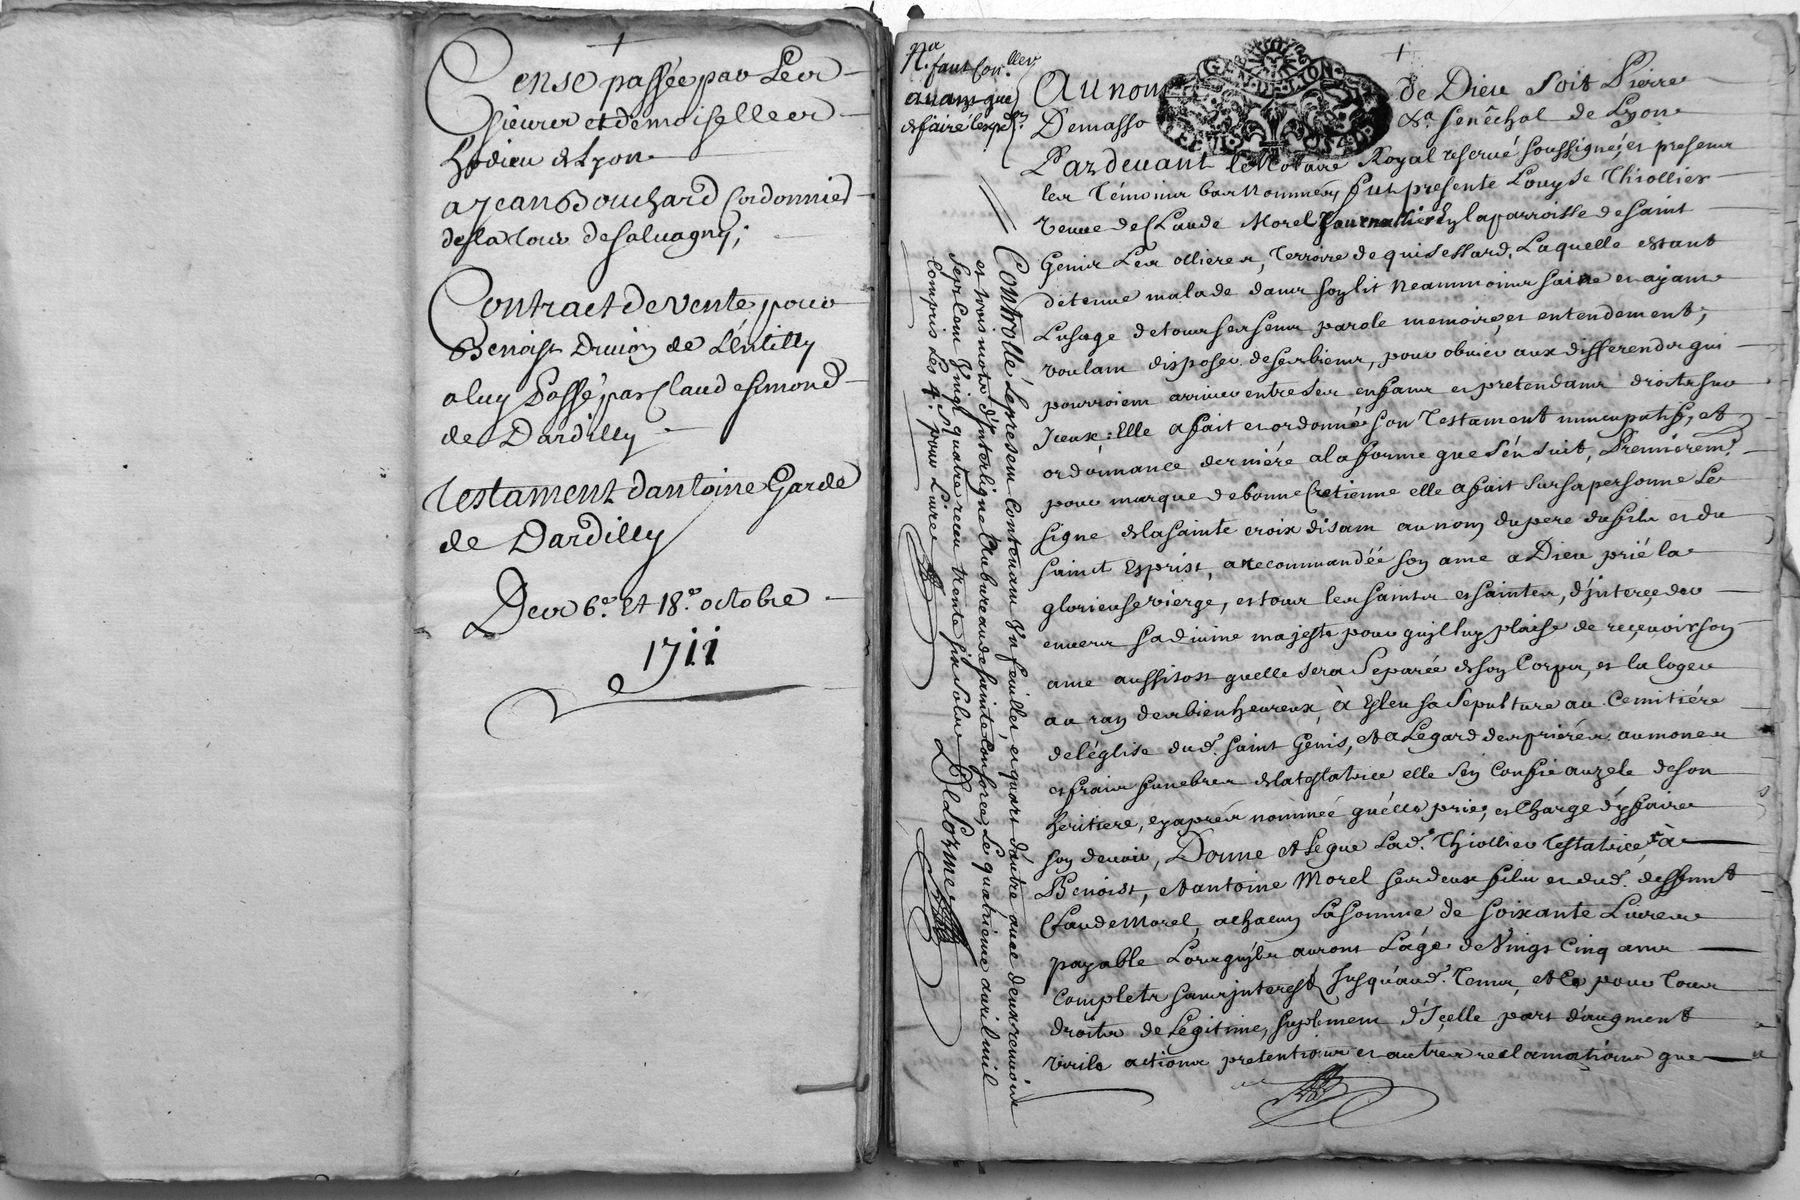 +
Cense passée par Les
Sieurs et demoiselles
hodieu de Lyon
a Jean Bouchard Cordonnier
de la Tour de Salvagny;
Contract de vente pour
Benoist Druion de Lentilly
a luy Passé par Claude Simond
de Dardilly
Testament dantoine Garde
de Dardilly
Des 6.e et 18.e octobre
1711
Na
faut Con.ller
avant que
de faire lesped.on
+
Au nom de Dieu Soit Pierre
Demasso &a Senêchal de Lyon
Pardevant le Notaire Royal reservé soussigné, et presens
les Témoins bas nommés, fut presente Louyse Thiollier
veuve de Claude Morel Journallier de la parroisse de Saint
Genis Les ollieres, Terroire de quinsessard, Laquelle estant
detenue malade dans son lit neanmoins saine et ayant
Lusage de tous ses sens parole memoire, et entendement,
voulant disposer de ses biens, pour obvier aux differends qui
pourroient arriver entre ses enfans et pretendans droits sur
Iceux; Elle a fait et ordonné son Testament nuncupatif, et
ordonnance derniére a la forme que sén suit, Premiérem.t
pour marque de bonne Cretienne elle a fait sur sa personne Le
signe de la sainte croix disant au nom du pere du fils et du
sainct Esprist, a recommandéé son ame a Dieu prié la
glorieuse vierge, et tous les saints et saintes, d'jnterçeder
envers sa divine majesté pour quil luy plaise de reçevoir son
ame aussitost quelle sera Separée de son Corps, et la loger
au rang des bienheureux, à Esleu sa Sepulture au Cemitiére
de léglise dud. saint Genis, et a Legard des priéres aumones
et frais funebres de la testatrice elle sen Confie au zele de son
heritiere, cy aprés nommée quélle prie, et Charge dy faire
son devoir, Donne et Legue Lad.e Thiollier Testatrice à
Benoist, et antoine Morel ses deux fils et dud. deffunt
Claude Morel, a chacun La somme de soixante Livres
payable Lors quils auront Láge de Vingt Cinq ans
complets sans jnterest Jusquáud. Tems, et Ce pour Tous
droits de Legitime, suplement d'Içelle part d'augment
virile actions pretentions et autres reclamations que
Controllé Le present Contenant Un feuillet et quart d'autre avec deux renvois
et trois mots d'Interligne Au bureau de sainte Consorce, Le quatrieme avril mil
sept Cent Vingt quatre receu trente six sols Delorme
Compris Les 4. s. pour Livre